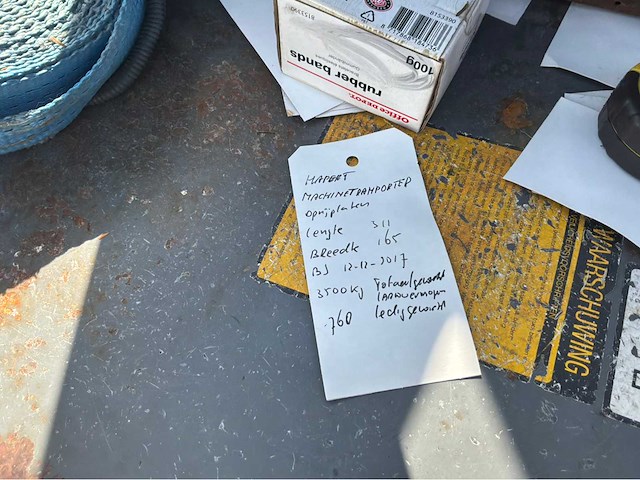 8153390
8153390
100g
rubber bands
Office DEPOT
HAPERT
MACHINETRANPORTER
oprijplaten
Lengte 311
Breedte 165
BJ 12-12-2017
3500 Kg Totaalgewicht
760 Lediggewicht
WAARSCHUWING